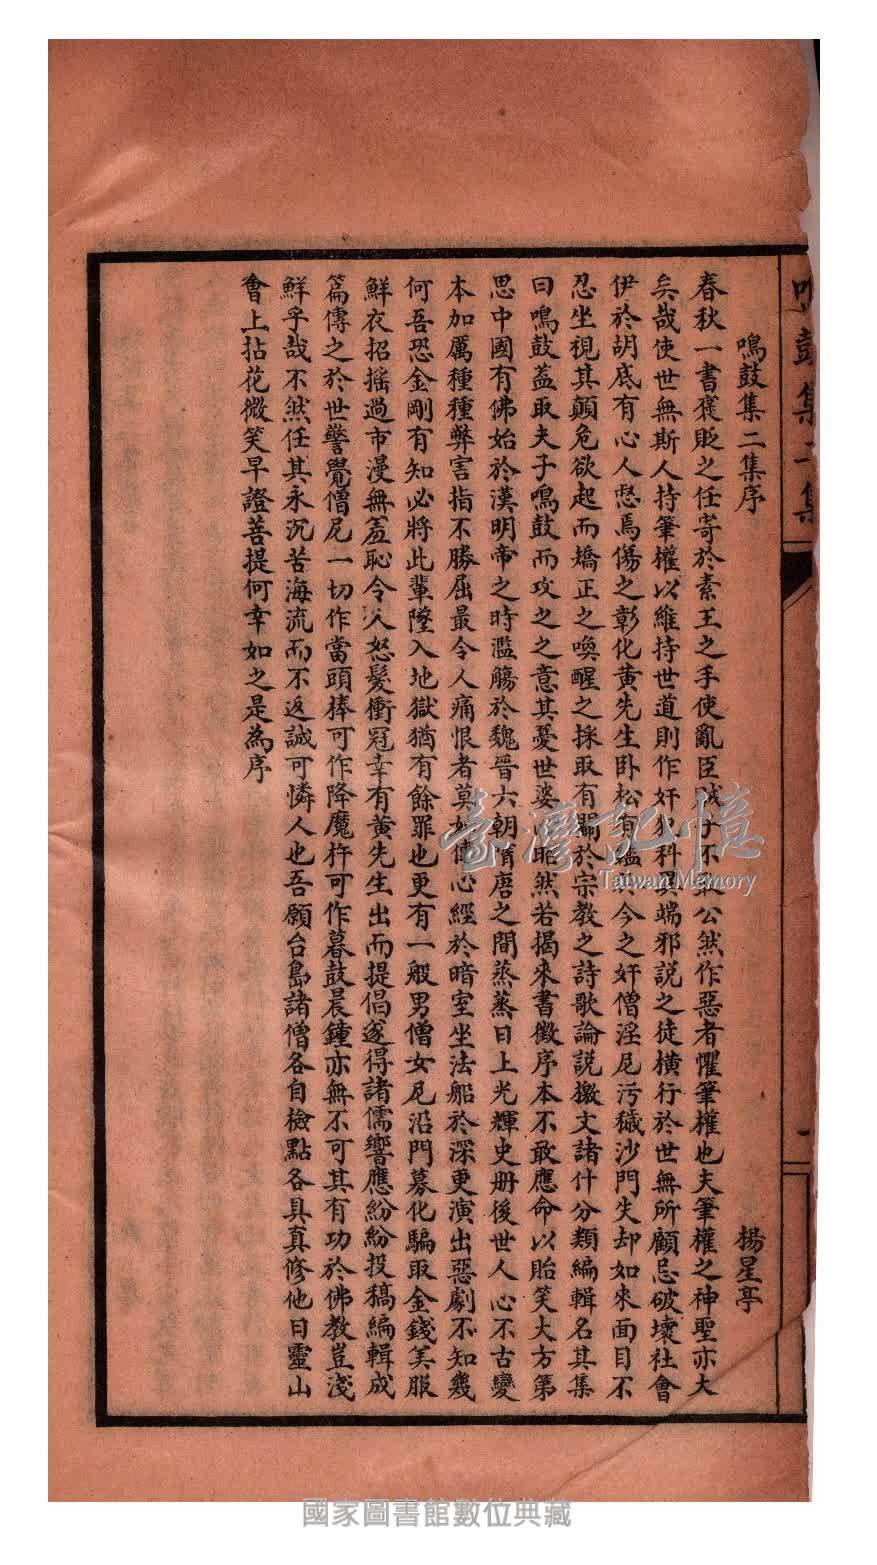 鳴鼓集二集
鳴鼓集二集序
楊星亭
春秋一書褒貶之任寄於素王之手使亂臣賊子不敢公然作惡者懼筆權也夫筆權之神聖亦大
矣哉使世無斯人持筆權以維持世道則作奸犯科異端邪説之徒橫行於世無所顧忌破壞社會
伊於胡底有心人惄焉傷之彰化黃先生臥松有鑑於今之奸僧淫尼污穢沙門失却如來面目不
忍坐視其顛危欲起而矯正之喚醒之採取有關於宗教之詩歌論説檄文諸什分類編輯名其集
曰鳴鼓蓋取夫子鳴鼓而攻之之意其憂世婆心昭然若揭來書徵序本不敢應命以貽笑大方第
思中國有佛始於漢明帝之時濫觴於魏晉六朝隋唐之間蒸蒸日上光輝史册後世人心不古變
本加厲種種弊害指不勝屈最令人痛恨者莫如傳心經於暗室坐法船於深更演出惡劇不知幾
何吾恐金剛有知必將此輩墜入地獄猶有餘罪也更有一般男僧女尼沿門募化騙取金錢美服
鮮衣招搖過市漫無羞恥令人怒髮衝冠幸有黃先生出而提倡遂得諸儒響應紛紛投稿編輯成
篇傳之於世警覺僧尼一切作當頭棒可作降魔杵可作暮鼓晨鐘亦無不可其有功於佛教豈淺
鮮乎哉不然任其永沉苦海流而不返誠可憐人也吾願台島諸僧各自檢點各具真修他日靈山
會上拈花微笑早證菩提何幸如之是為序
一
臺灣記憶
Taiwan Memory
國家圖書館數位典藏